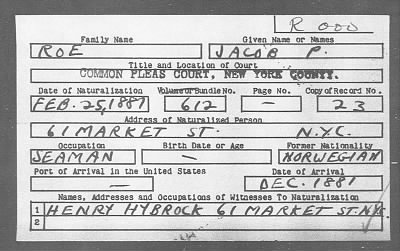 R 000
Family Name Given Name or Names
ROE JACOB P.
Title and Location of Court
COMMON PLEAS COURT, NEW YORK COUNTY.
Date of Naturalization Volume or Bundle No. Page No. Copy of Record No.
FEB. 25, 1887 612 — 23
Address of Naturalized Person
61 MARKET ST. N.Y.C.
Occupation Birth Date or Age Former Nationality
SEAMAN — NORWEGIAN
Port of Arrival in the United States Date of Arrival
— DEC. 1881
Names, Addresses and Occupations of Witnesses To Naturalization
1 HENRY HYBROCK 61 MARKET ST. N.Y.C.
2